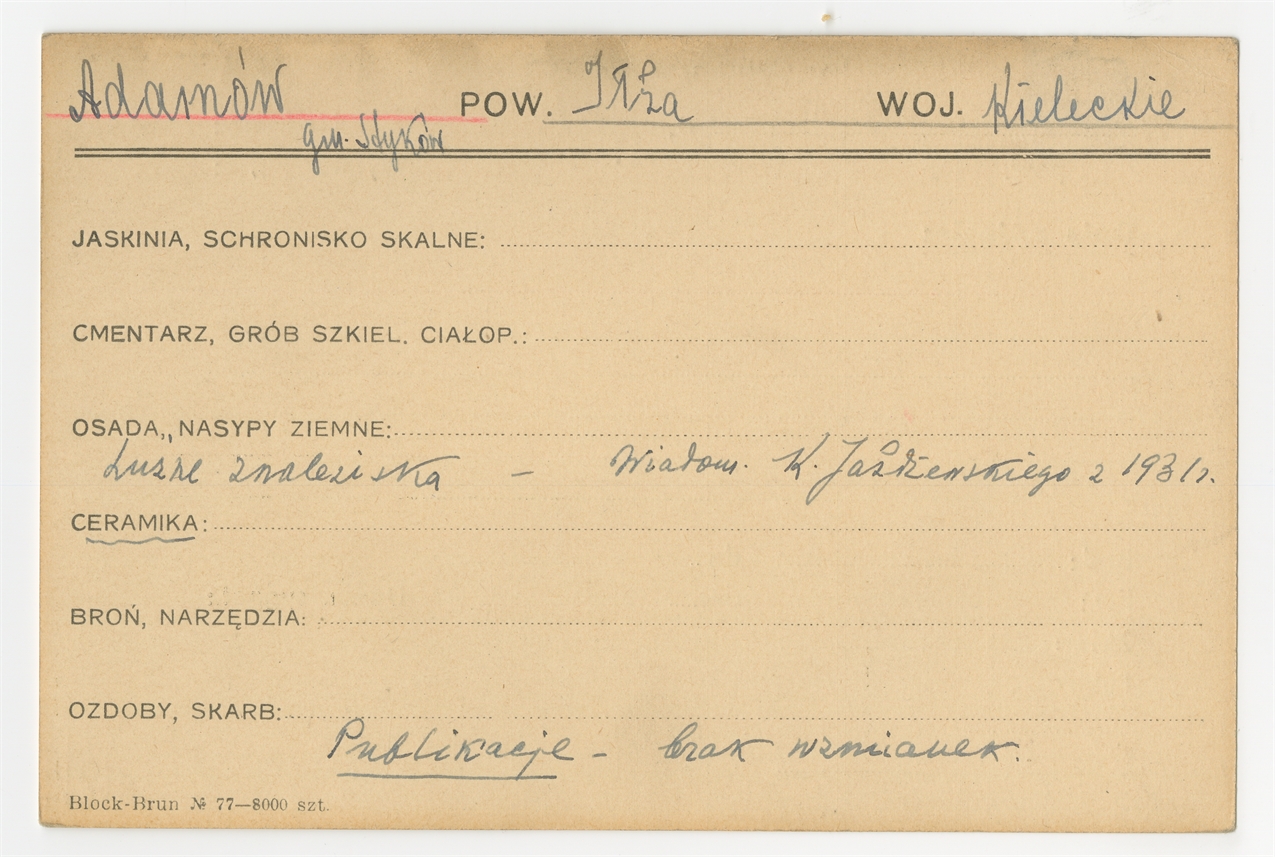 Adamów POW. Iłża WOJ. Kieleckie
gm. Styków
JASKINIA, SCHRONISKO SKALNE:
CMENTARZ, GRÓB SZKIEL. CIAŁOP.:
OSADA,, NASYPY ZIEMNE:
Luzne znaleziska – Wiadom. K. Jażdżewskiego z 1931 r.
CERAMIKA:
BROŃ, NARZĘDZIA:
OZDOBY, SKARB:
Publikacje – brak wzmianek.
Block-Brun № 77—8000 szt.